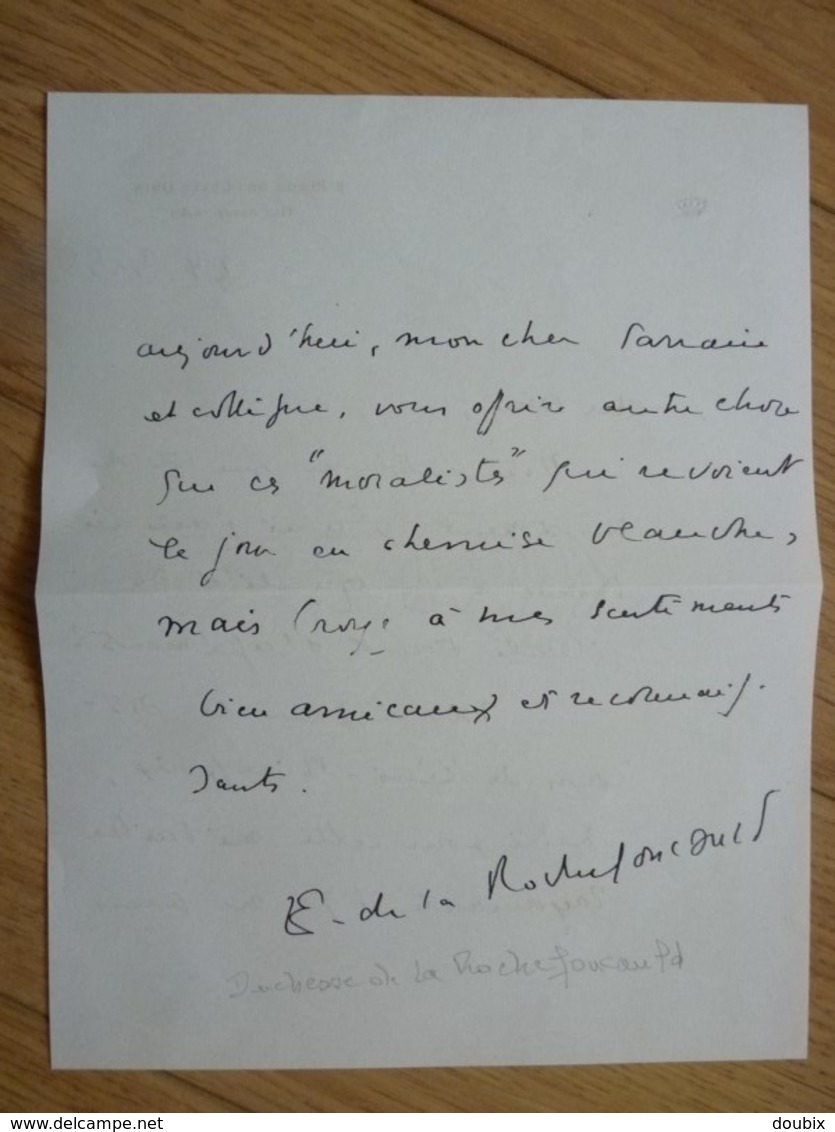 aujourd'hui, mon cher Parrain
et collègue, vous offrir autre chose
que ces "moralistes" qui revoient
le jour en chemise blanche,
mais croyez à mes sentiments
bien amicaux et reconnais-
sants.
E. de la Rochefoucauld
Duchesse de la Rochefoucauld
www.delcampe.net
doubix